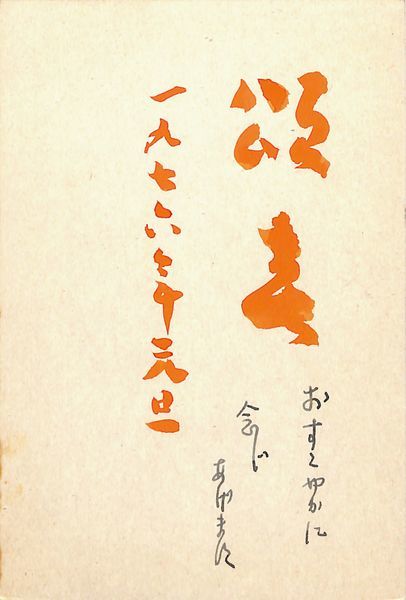 頌春
一九七六年元旦
おすこやかに
念じ
あげます